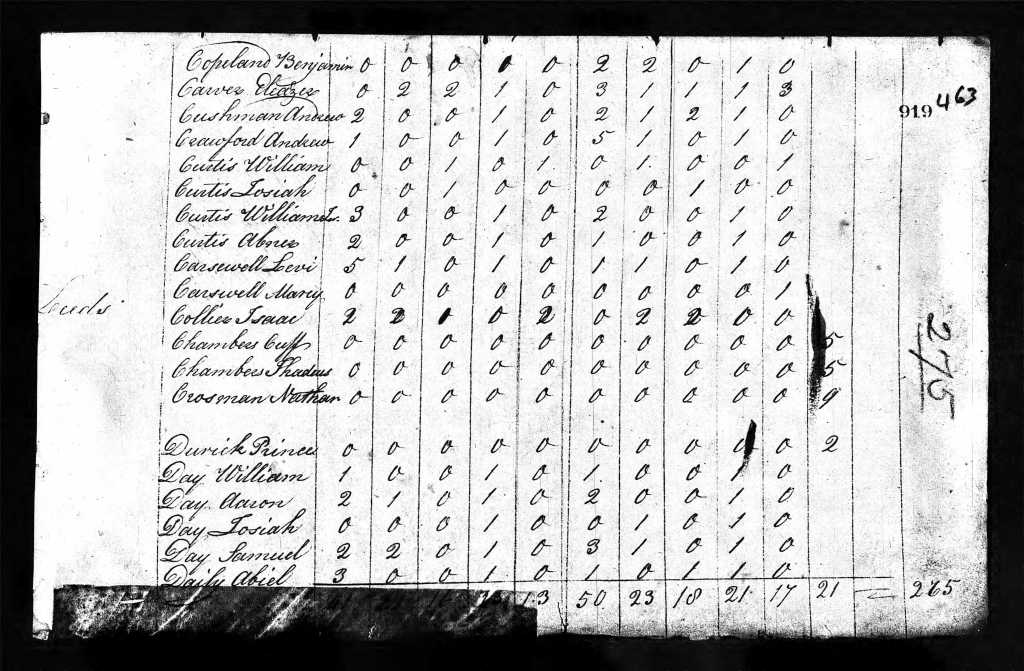 Copeland Benjamin 0 0 0 0 0 2 2 0 1 0
Carver Eleazer 0 2 2 1 0 3 1 1 1 3
919 463
Cushman Andrew 2 0 0 1 0 2 1 2 1 0
Crawford Andrew 1 0 0 1 0 5 1 0 1 0
Curtis William 0 0 1 0 1 0 1 0 0 1
Curtis Josiah 0 0 1 0 0 0 0 1 0 0
Curtis William Jr. 3 0 0 1 0 2 0 0 1 0
Curtis Abner 2 0 0 1 0 1 0 0 1 0
Carsewell Levi 5 1 0 1 0 1 1 0 1 0
Carswell Mary 0 0 0 0 0 0 0 0 0 1
Collier Isaac 2 2 0 2 0 2 2 0 0
Chambers Cuff 0 0 0 0 0 0 0 0 0 0 5
Chambers 0 0 0 0 0 0 0 0 0 0 5
Crosman Nathan 0 0 0 0 0 0 0 0 0 0 9
275
Durick Prince 0 0 0 0 0 0 0 0 0 0 2
Day William 1 0 0 1 0 1 0 0 1 0
Day Aaron 2 1 0 1 0 2 0 0 1 0
Day Josiah 0 0 0 1 0 0 1 0 1 0
Day Samuel 2 2 0 1 0 3 1 0 1 0
Daily Abiel 3 0 0 1 0 1 0 1 1 0
13 50 23 18 21 17 21 265